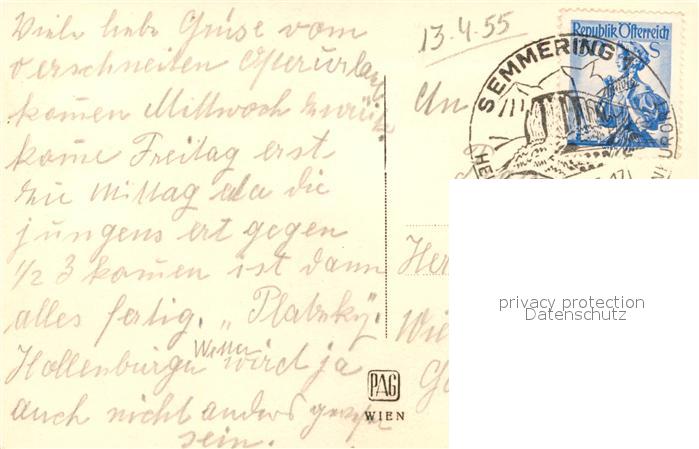 Viele liebe Grüse vom
verschneiten Osterurlaub
komen Mittwoch zurük
kome Freitag erst
zu Mittag da die
jungens ert gegen
1/2 3 komen ist dann
alles fertig. „Platzky".
Hollenburger Wetter wird ja
auch nicht anders gewesen
sein.
13.4.55
An
Her
Wie
PAG
WIEN
Republik Österreich
S
SEMMERING
privacy protection
Datenschutz